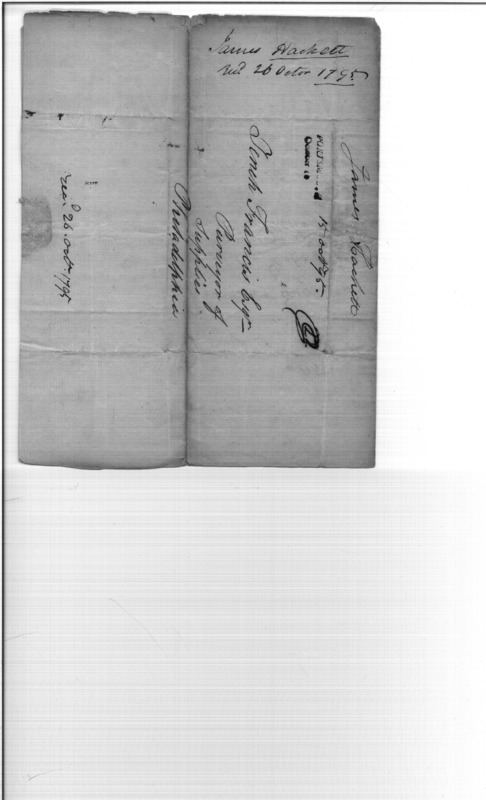 James Hackett
recd 26 Octor 1795
James Hackett
15 octr 95.
Tench Francis Esqr
Purveyor of
Supplies
Philadelphia
recd 26 octr 1795